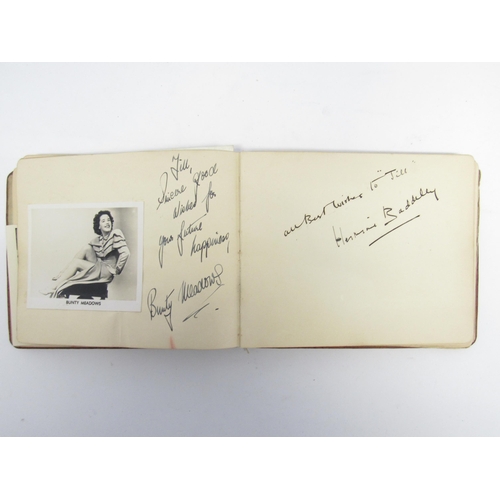 Jill,
Sincere good
wishes for
your future
happiness
Bunty Meadows
BUNTY MEADOWS
All Best wishes to "Jill"
Hermione Baddeley